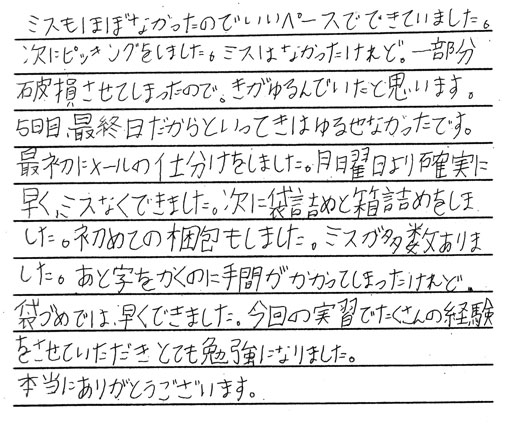 ミスもほぼなかったのでいいペースでできていました。
次にピッキングをしました。ミスはなかったけれど。一部分
破損させてしまったので。きがゆるんでいたと思います。
5日目、最終日だからといってきはゆるせなかったです。
最初にメールの仕分けをしました。月曜日より確実に
早く、ミスなくできました。次に袋詰めと箱詰めをしま
した。初めての梱包もしました。ミスが多数ありま
した。あと字をかくのに手間がかかってしまったけれど、
袋づめでは、早くできました。今回の実習でたくさんの経験
をさせていただきとても勉強になりました。
本当にありがとうございます。